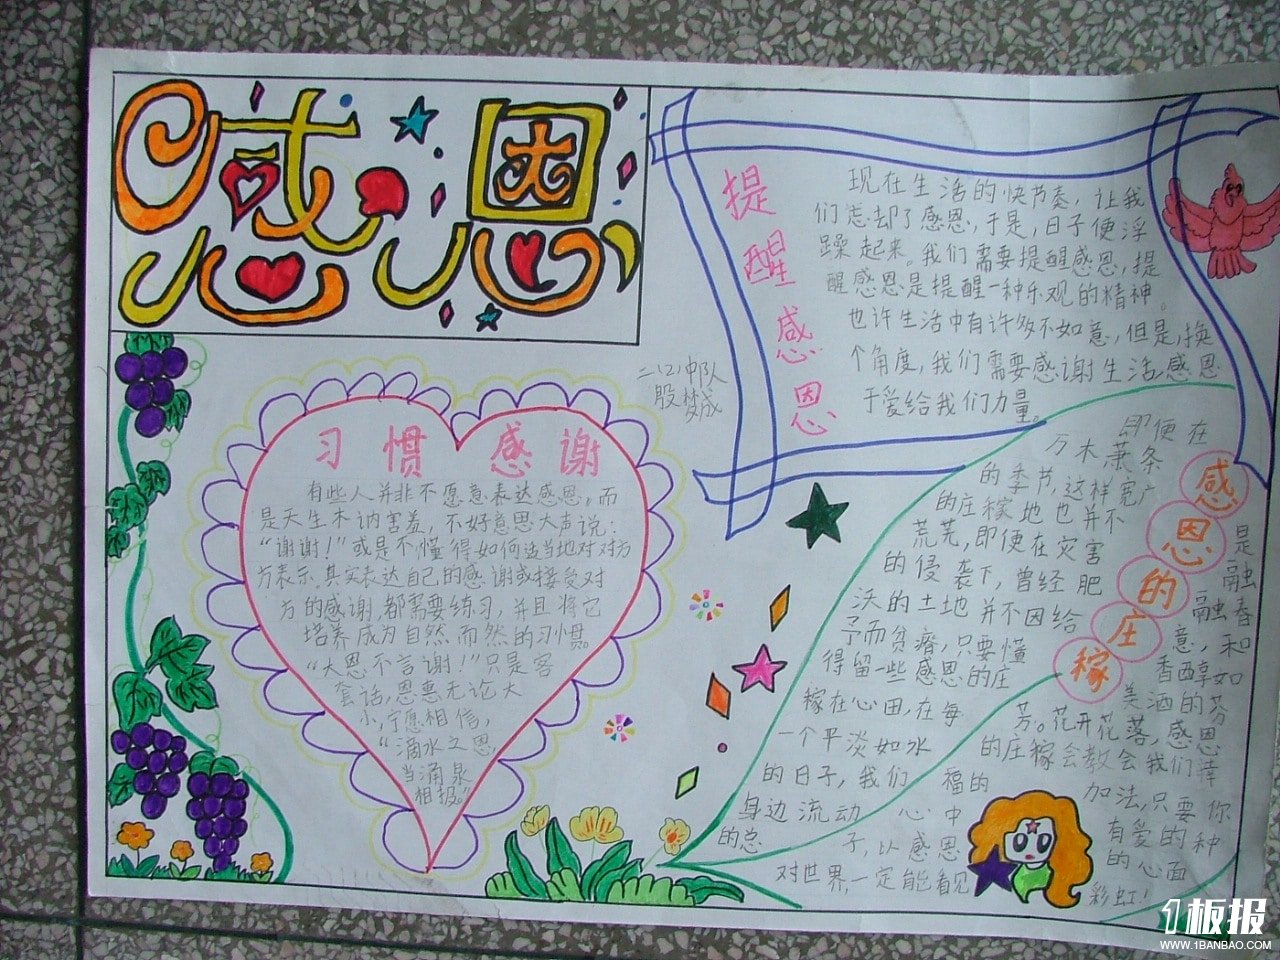 感恩
提醒感恩
现在生活的快节奏，让我
们忘却了感恩，于是，日子便浮
躁起来。我们需要提醒感恩，提
醒感恩是提醒一种乐观的精神。
也许生活中有许多不如意，但是，换
个角度，我们需要感谢生活感恩
于爱给我们力量。
二(2)中队
殷梦成
习惯感谢
有些人并非不愿意表达感恩，而
是天生木讷害羞，不好意思大声说：
“谢谢！”或是不懂得如何适当地对对方
方表示，其实表达自己的感谢或接受对
方的感谢，都需要练习，并且将它
培养成为自然而然的习惯。
“大恩不言谢！”只是客
套话，恩惠无论大
小，宁愿相信，
“滴水之恩，
当涌泉
相报。”
感恩的庄稼
即便在
万木萧条
的季节，这样宽广
的庄稼地也并不
荒芜，即便在灾害
的侵袭下，曾经肥
沃的土地并不因给
予而贫瘠，只要懂
得留一些感恩的庄
稼在心田，在每
一个平淡如水
的日子，我们
身边流动
的总
是融
融春
意，和
香醇如
美酒的芬
芳。花开花落，感恩
的庄稼会教会我们幸
福的加法，只要你
心中有爱的种
子，以感恩的心面
对世界，一定能看见彩虹！
1板报
WWW.1BANBAO.COM